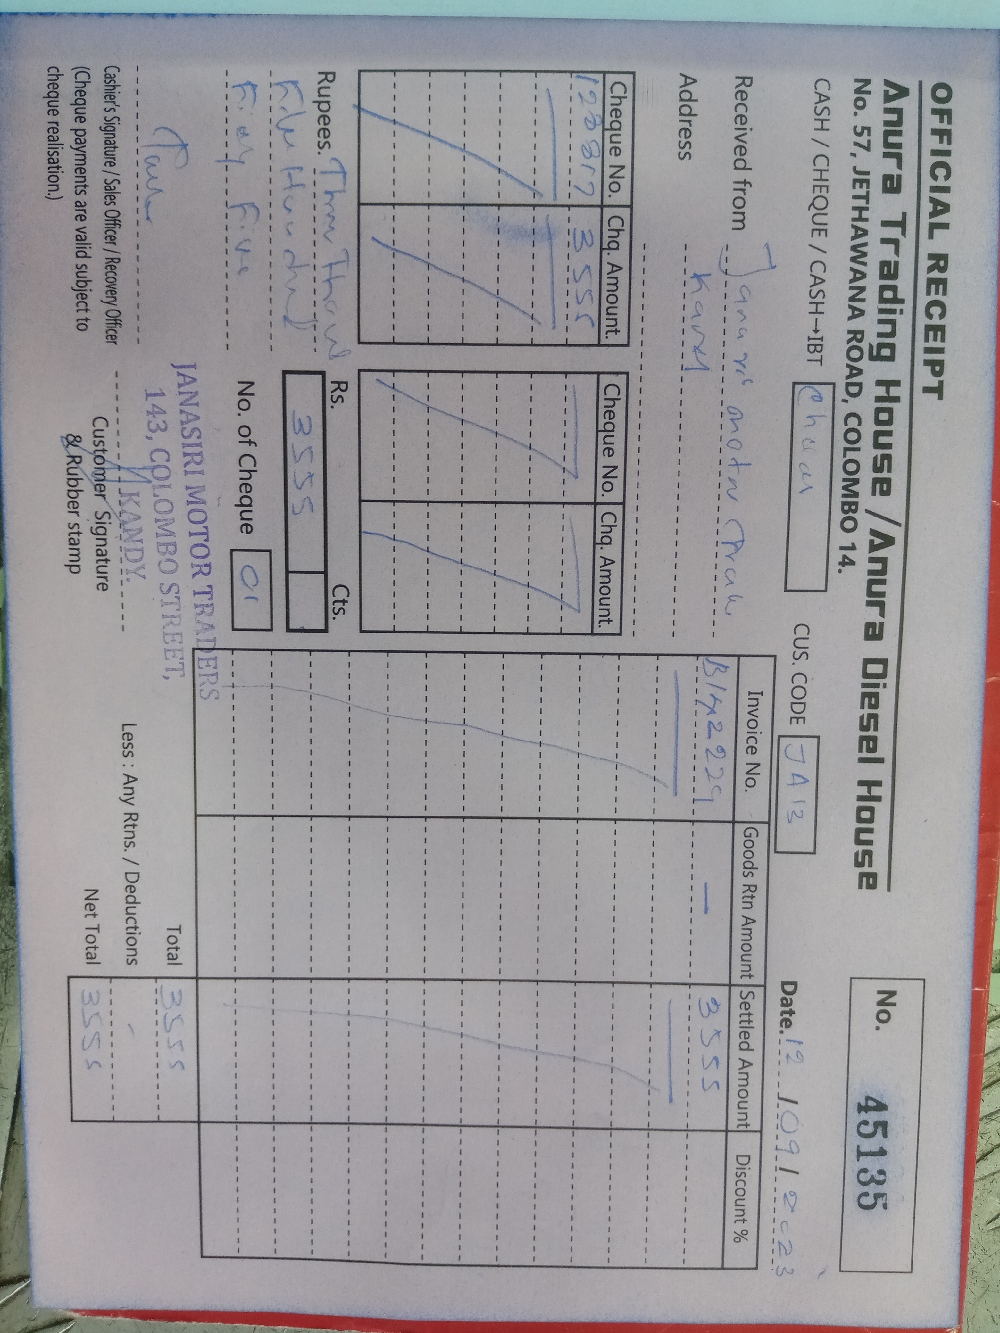 OFFICIAL RECEIPT
Anura Trading House / Anura Diesel House
No. 57, JETHAWANA ROAD, COLOMBO 14.
No. 45135
CASH / CHEQUE / CASH→IBT
CUS. CODE JA13
Date. 12 / 09 / 2023
Received from Janasiri motor
Address Kandy
Cheque No. Chq. Amount. Cheque No. Chq. Amount.
3555
Invoice No. Goods Rtn Amount Settled Amount Discount %
B142229 — 3555
Rupees. Three Thousand
Five Hundred
Fifty Five
Rs. Cts.
3555
No. of Cheque 01
JANASIRI MOTOR TRADERS
143, COLOMBO STREET,
KANDY.
Cashier's Signature / Sales Officer / Recovery Officer
(Cheque payments are valid subject to
cheque realisation.)
Customer Signature
& Rubber stamp
Total 3555
Less : Any Rtns. / Deductions -
Net Total 3555